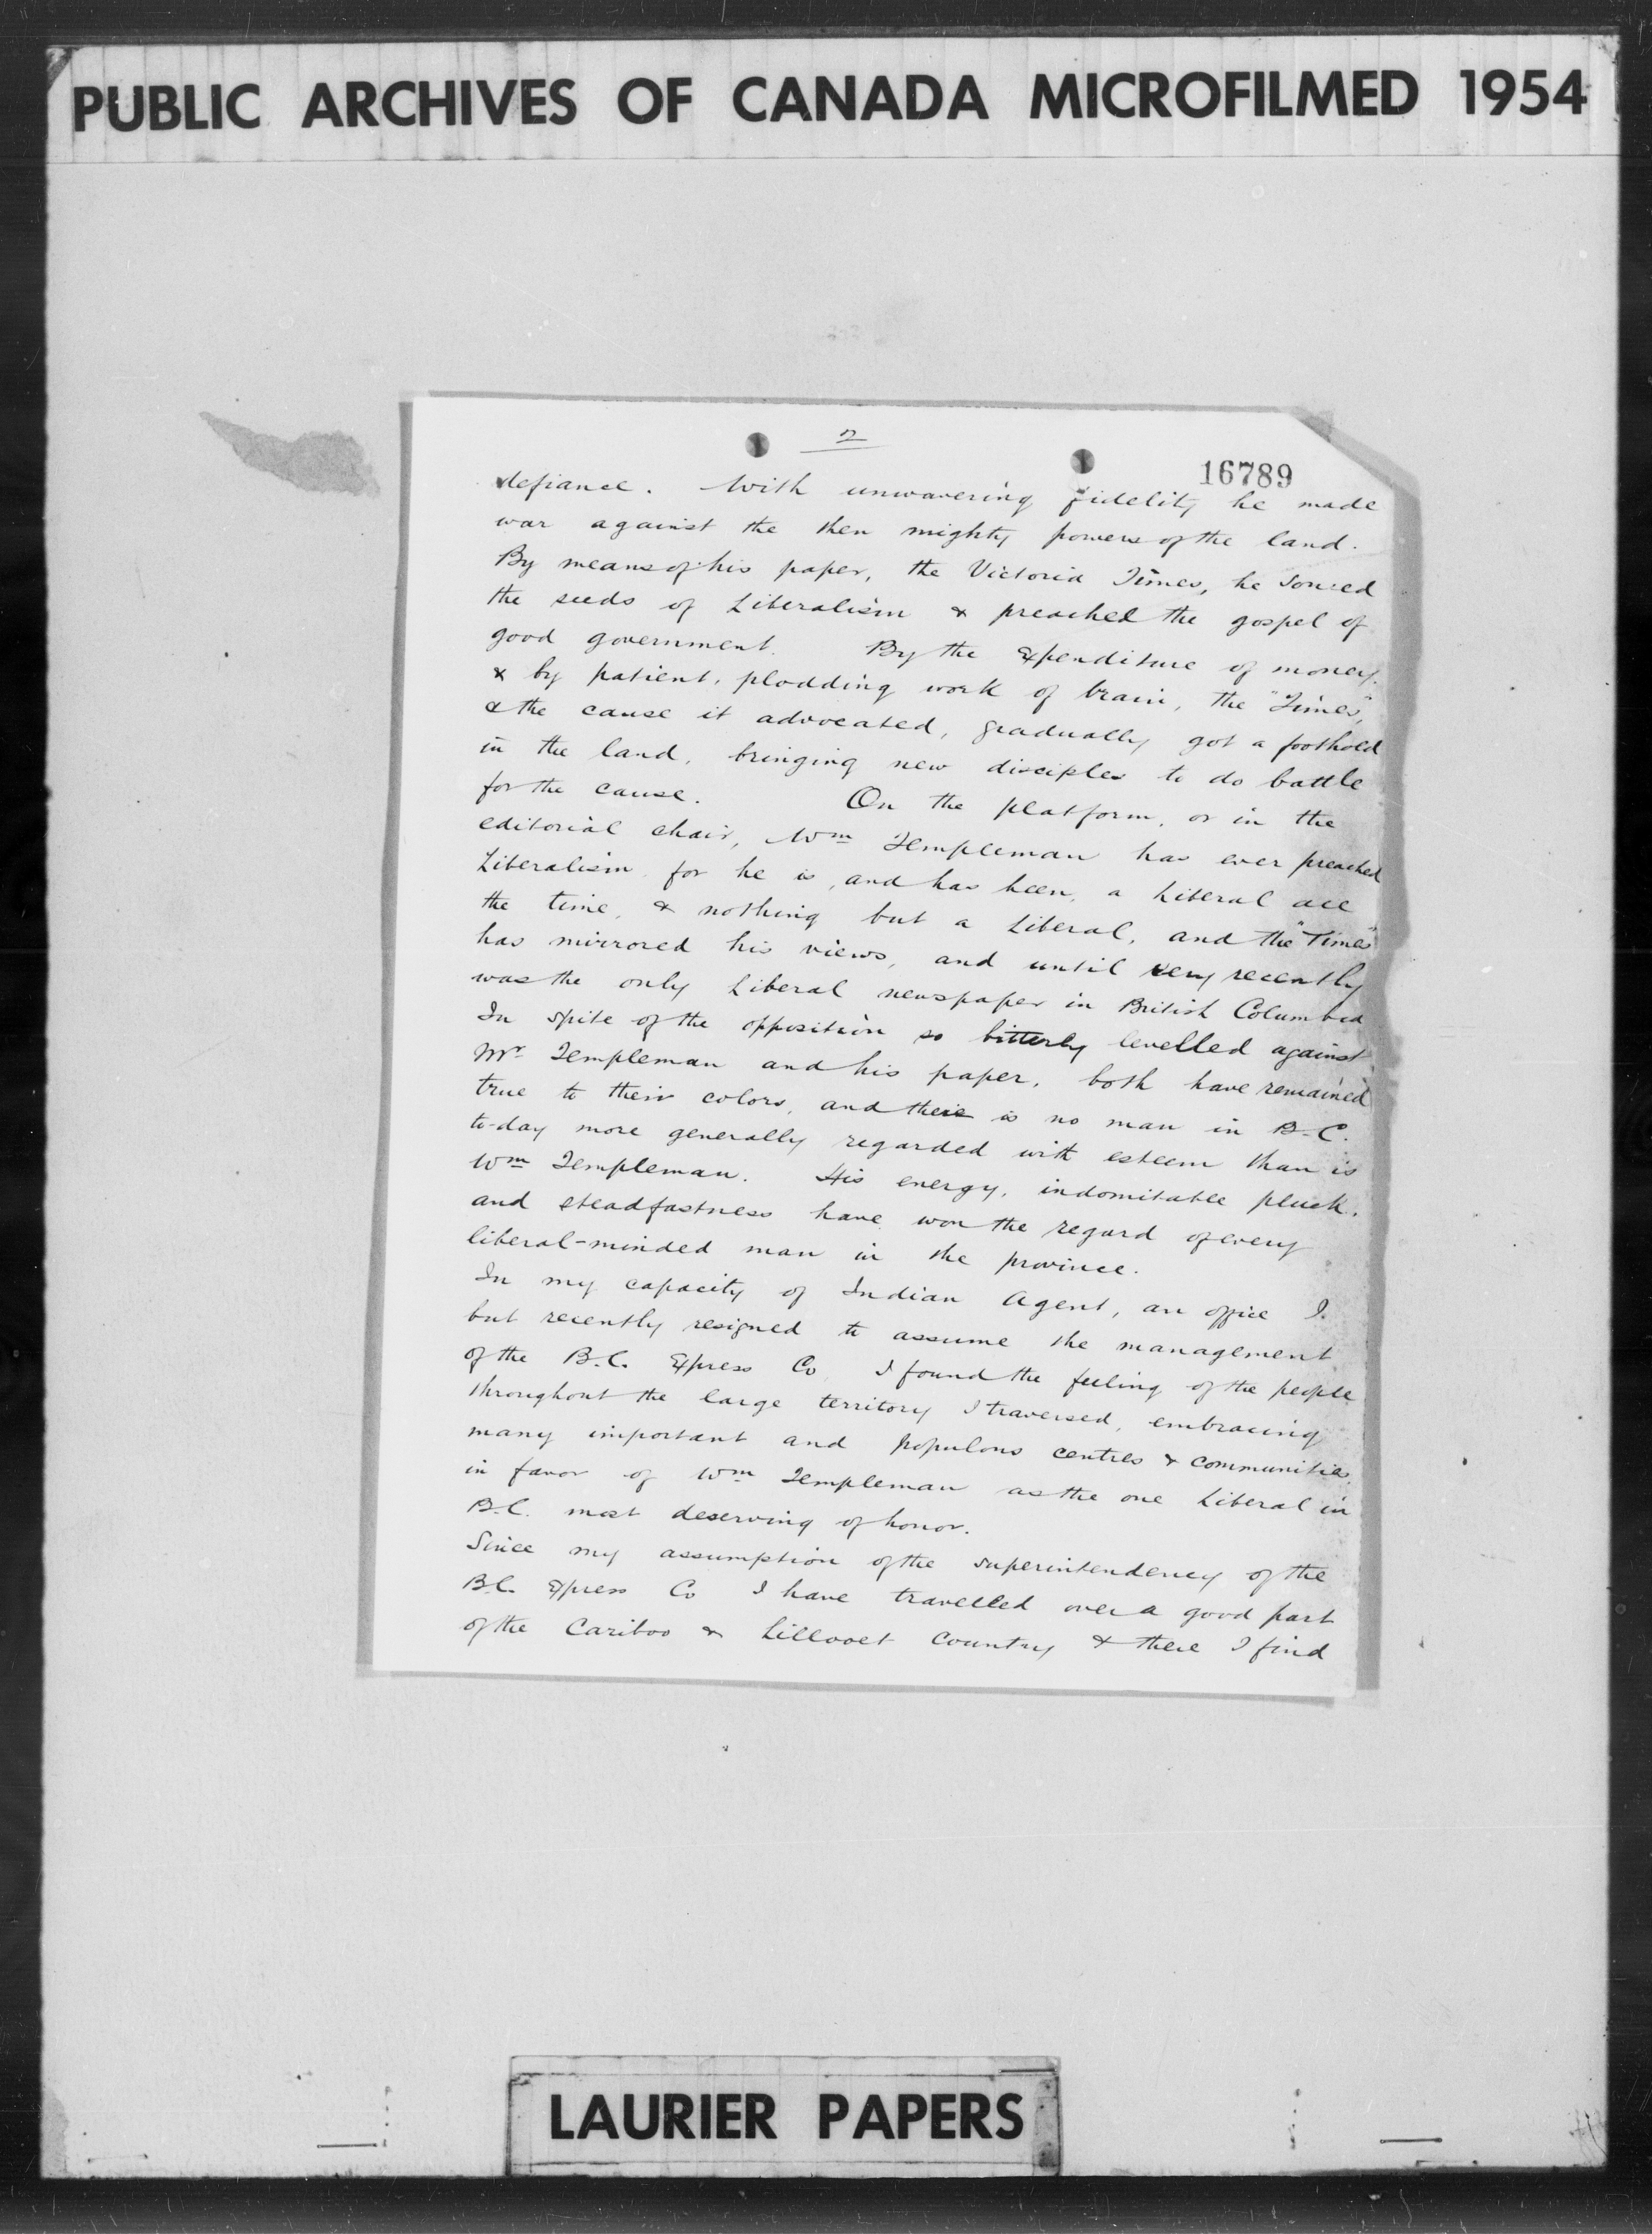 PUBLIC ARCHIVES OF CANADA MICROFILMED 1954
2
16789
defiance. With unwavering fidelity he made
war against the then mighty powers of the land.
By means of his paper, the Victoria Times, he sowed
the seeds of Liberalism & preached the gospel of
good government. By the Expenditure of money
& by patient, plodding work of brain, the "Times",
& the cause it advocated, gradually got a foothold
in the land, bringing new disciples to do battle
for the cause. On the platform, or in the
editorial chair, Wm Templeman has ever preached
Liberalism for he is, and has been, a Liberal all
the time, & nothing but a Liberal, and the "Times"
has mirrored his views, and until very recently
was the only Liberal newspaper in British Columbia
In spite of the opposition so bitterly levelled against
Mr Templeman and his paper, both have remained
true to their colors, and there is no man in B.C.
to-day more generally regarded with esteem than is
Wm Templeman. His energy, indomitable pluck,
and steadfastness have won the regard of every
liberal-minded man in the province.
In my capacity of Indian Agent, an office I
but recently resigned to assume the management
of the B.C. Express Co, I found the feeling of the people
throughout the large territory I traversed, embracing
many important and populous centres & communities,
in favor of Wm Templeman as the one Liberal in
B.C. most deserving of honor.
Since my assumption of the superintendency of the
B.C. Express Co I have travelled over a good part
of the Cariboo & Lillooet Country & there I find
LAURIER PAPERS